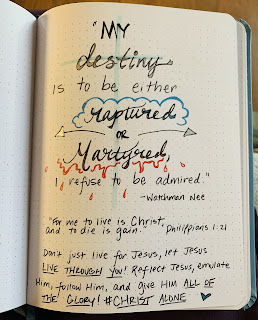 "MY
destiny
is to be either
raptured
OR
Martyred,
I refuse to be admired."
-Watchman Nee
"For me to live is Christ,
and to die is gain." Philippians 1:21
Don't just live for Jesus, let Jesus
LIVE THROUGH YOU! Reflect Jesus, emulate
Him, follow Him, and give HIM ALL OF
THE GLORY! #CHRIST ALONE